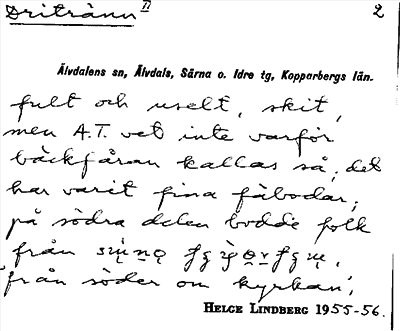 Dritränn 77 2
Älvdalens sn, Älvdals, Särna o. Idre tg, Kopparbergs län.
fult och uselt, skit,
men A.T. vet inte varför
bäckfåran kallas så, det
har varit fina fäbodar,
på södra delen bodde folk
från
från söder om kyrkan,
HELGE LINDBERG 1955-56.